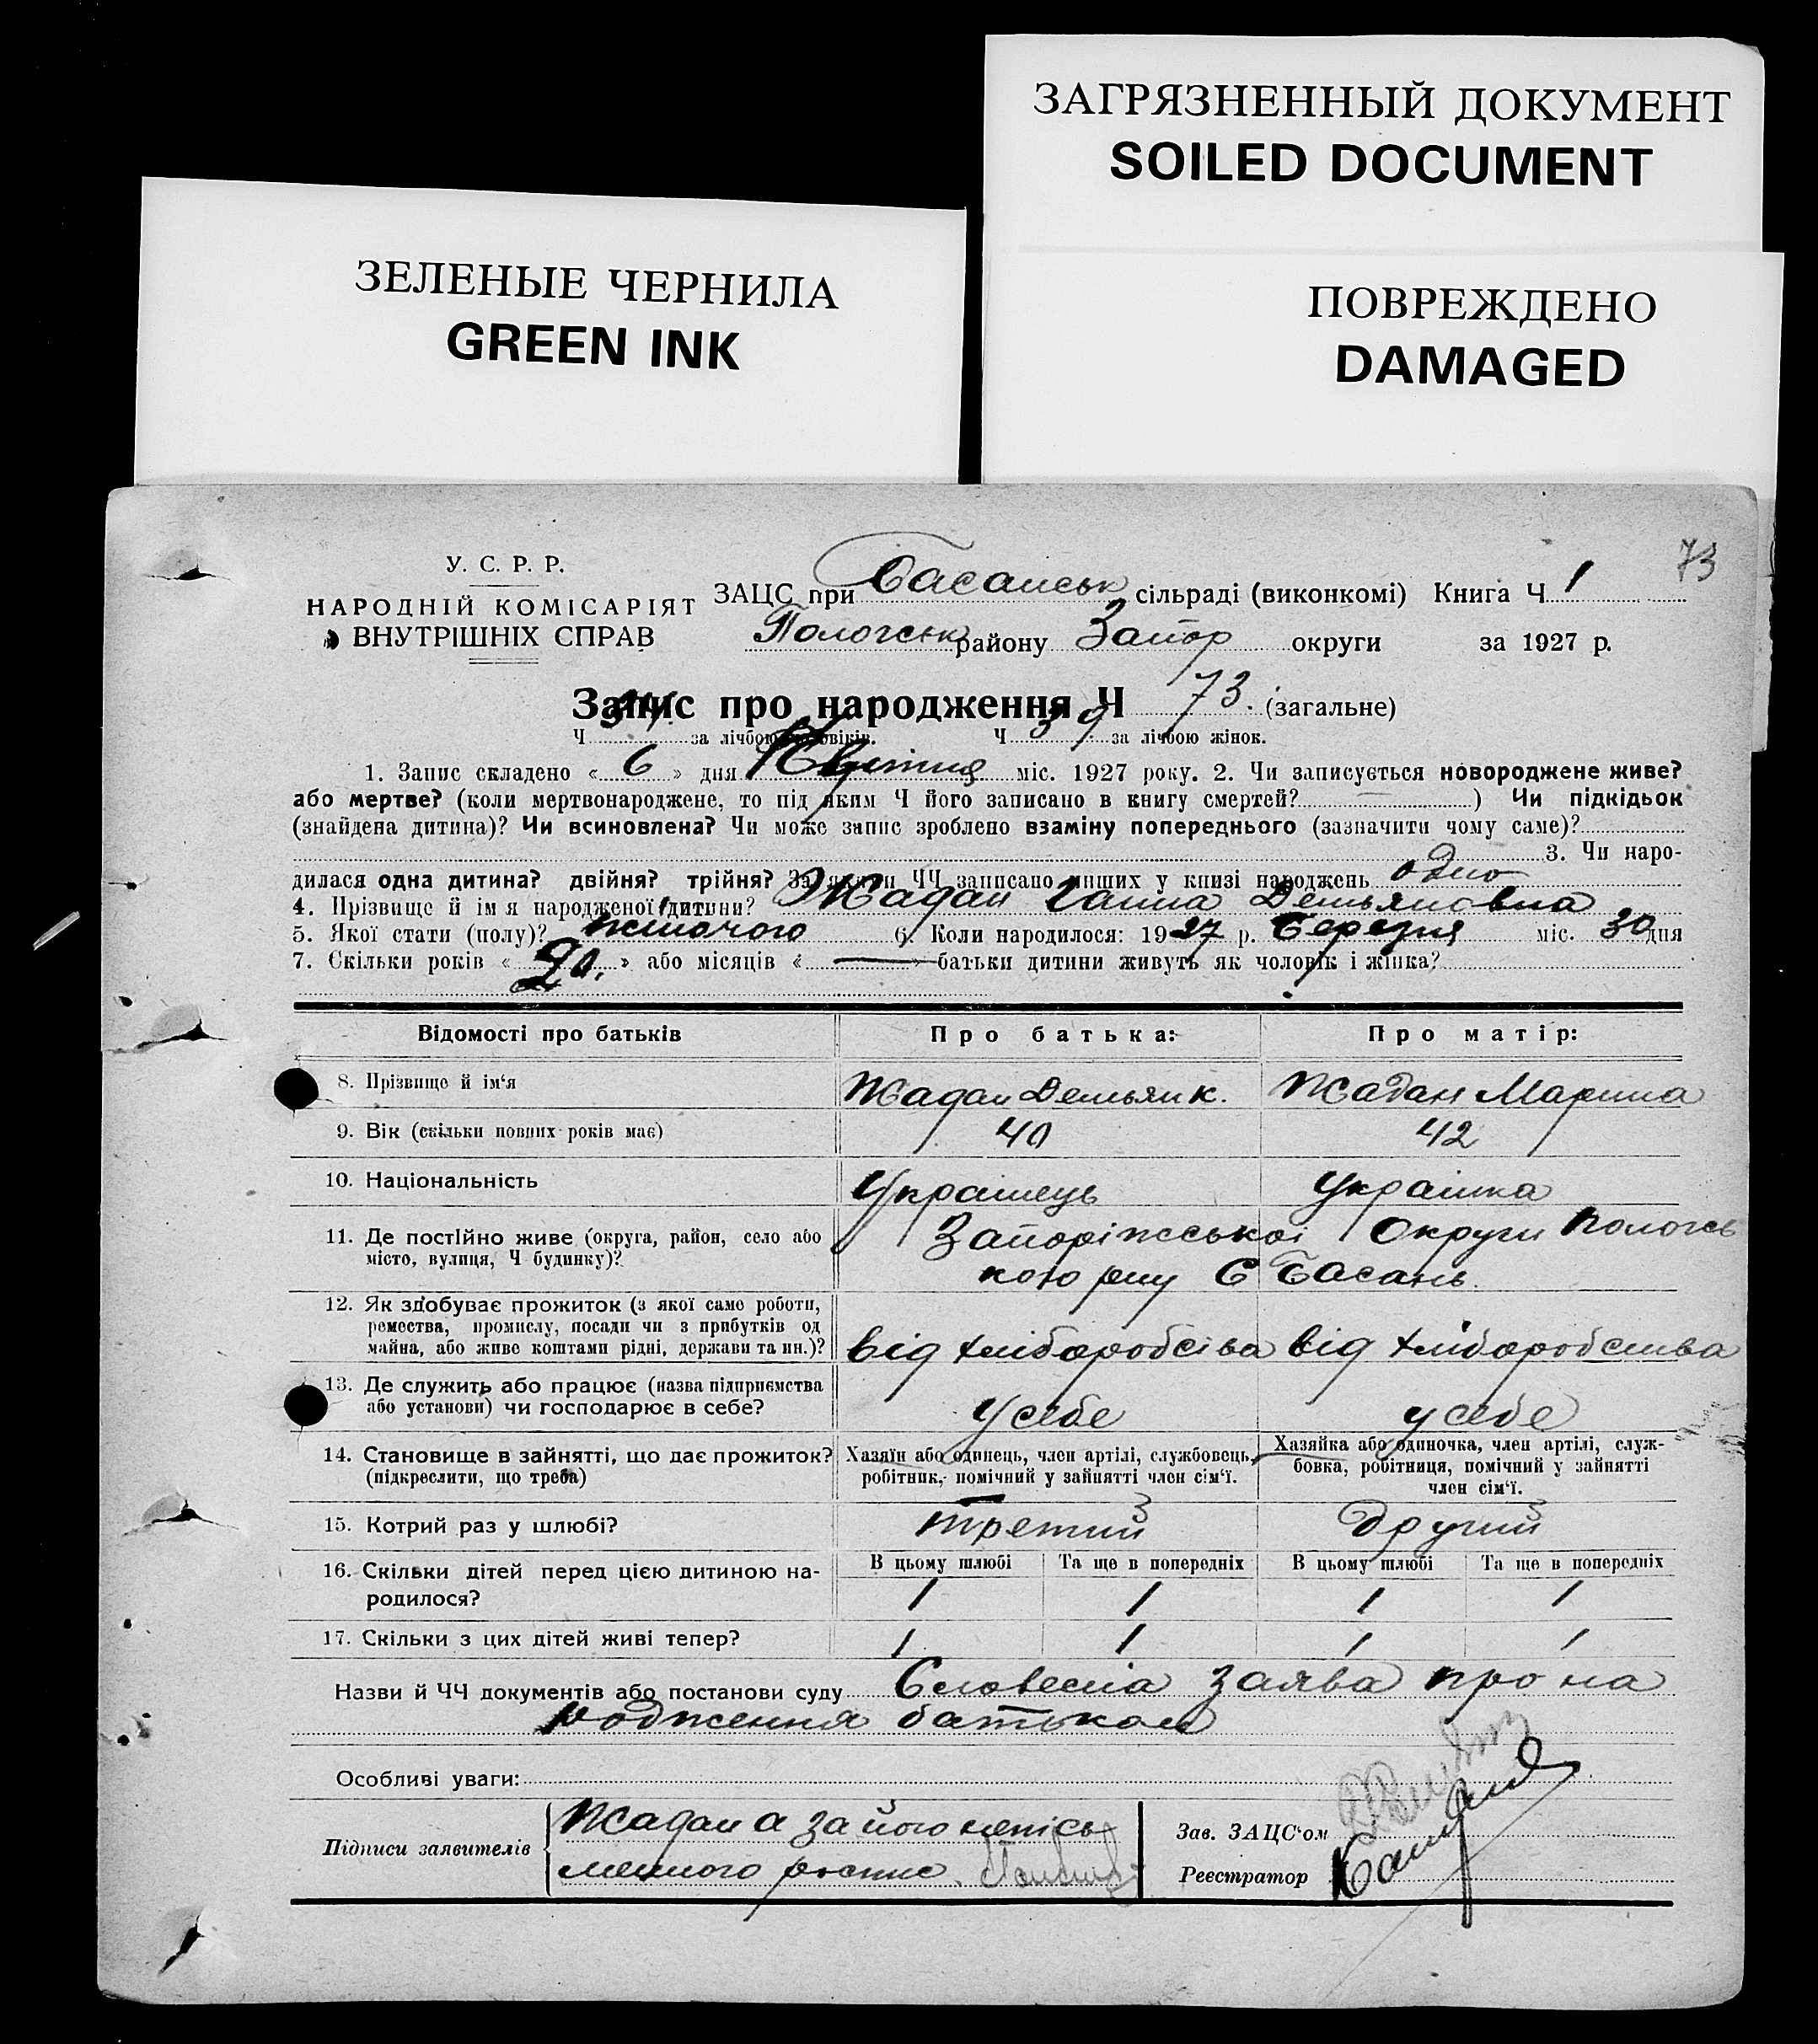 ЗАГРЯЗНЕННЫЙ ДОКУМЕНТ
SOILED DOCUMENT
ЗЕЛЕНЫЕ ЧЕРНИЛА
GREEN INK
ПОВРЕЖДЕНО
DAMAGED
73
У. С. Р. Р.
НАРОДНІЙ КОМІСАРІЯТ
ВНУТРІШНІХ СПРАВ
ЗАЦС при Басанськ сільраді (виконкомі) Книга Ч 1
Пологськ району Запор округи за 1927 р.
Запис про народження Ч 73. (загальне)
Ч 34 за лічбою чоловіків. Ч 39 за лічбою жінок.
1. Запис складено « 6 » дня Квітня міс. 1927 року. 2. Чи записується новороджене живе?
або мертве? (коли мертвонароджене, то під яким Ч його записано в книгу смертей? ) Чи підкідьок
(знайдена дитина)? Чи всиновлена? Чи може запис зроблено взаміну попереднього (зазначити чому саме)?
3. Чи наро-
дилася одна дитина? двійня? трійня? За якими ЧЧ записано инших у книзі народжень одно
4. Прізвище й ім'я народженої дитини? Жадан Ганна Демьяновна
5. Якої стати (полу)? жіночого 6. Коли народилося: 1927 р. Березня міс. 30 дня
7. Скільки років « » або місяців « — » батьки дитини живуть як чоловік і жінка?
Відомості про батьків Про батька: Про матір:
8. Прізвище й ім'я Жадан Демьян К. Жадан Марина
9. Вік (скільки повних років має) 40 42
10. Національність Українець Українка
11. Де постійно живе (округа, район, село або
місто, вулиця, Ч будинку)? Запоріжської Округи Пологсь
кого р-ну С Басань.
12. Як здобуває прожиток (з якої само роботи,
ремества, промислу, посади чи з прибутків од
майна, або живе коштами рідні, держави та ин.)? від хліборобства від хліборобства
13. Де служить або працює (назва підприємства
або установи) чи господарює в себе? у себе у себе
14. Становище в зайнятті, що дає прожиток?
(підкреслити, що треба)
Хазяїн або одинець, член артілі, службовець,
робітник, помічний у зайнятті член сім'ї.
Хазяйка або одиночка, член артілі, служ-
бовка, робітниця, помічний у зайнятті
член сім'ї.
15. Котрий раз у шлюбі? третий другий
16. Скільки дітей перед цією дитиною на-
родилося?
В цьому шлюбі Та ще в попередніх В цьому шлюбі Та ще в попередніх
1 1 1 1
17. Скільки з цих дітей живі тепер? 1 1 1 1
Назви й ЧЧ документів або постанови суду Словесна заява про на
родження батьком
Особливі уваги:
Підписи заявителів Жадан а за його неписьменного
Зав. ЗАЦС'ом
Реєстратор